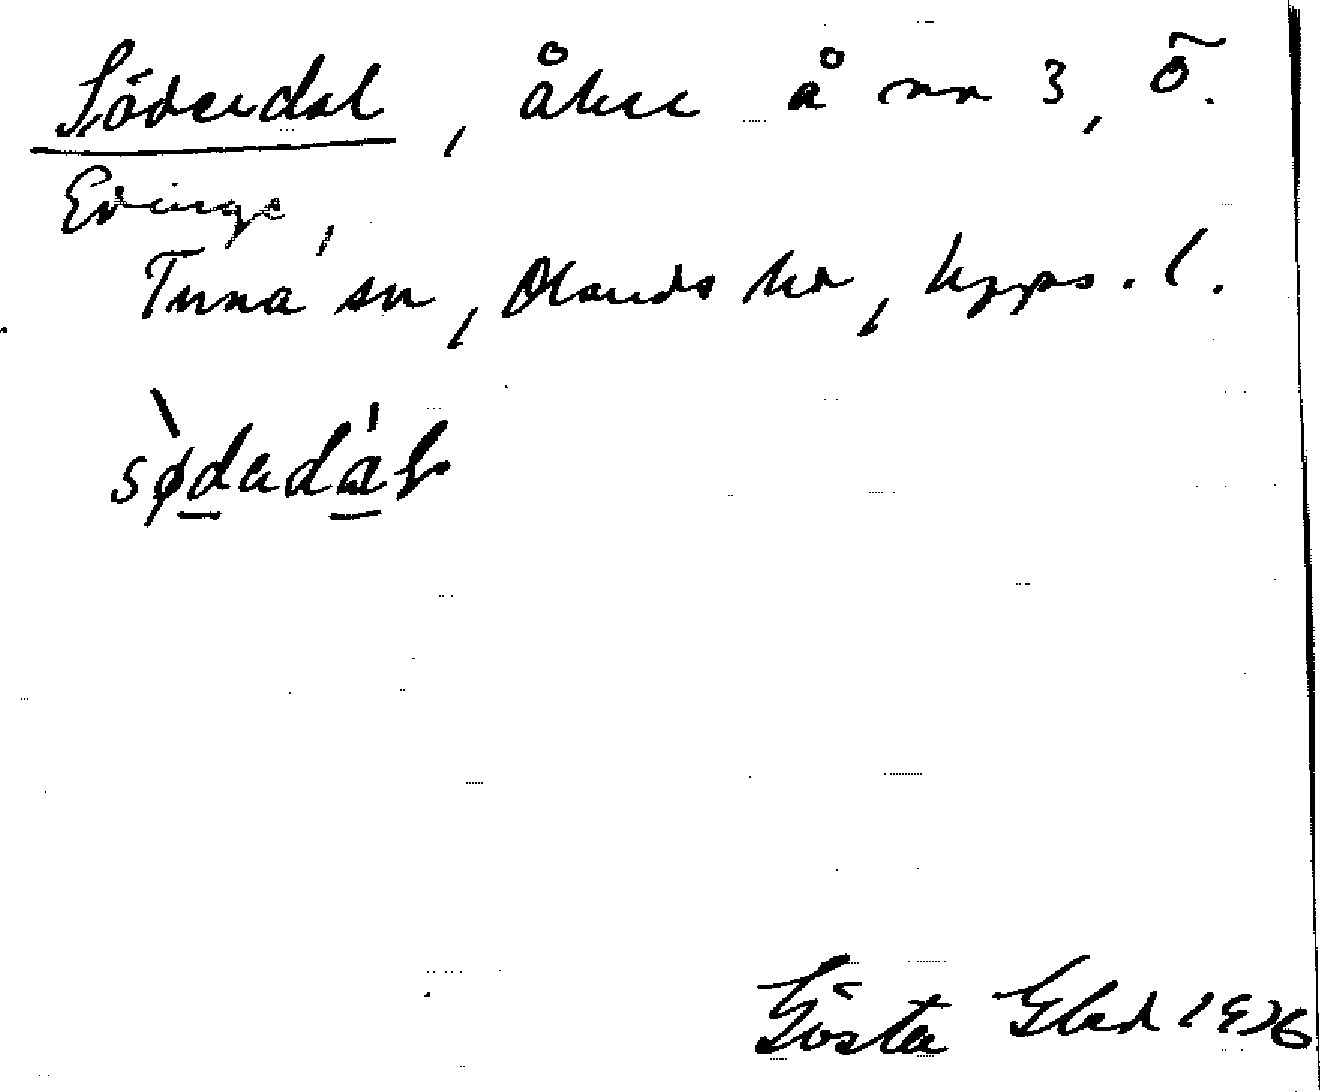 Söderdal, åker å nr 3, Ö.
Edinge,
Tuna sn, Olands hd, Upps. l.
sødadal
Gösta Glad 1926